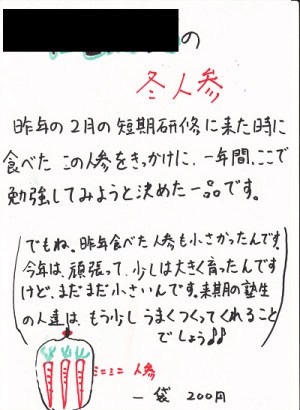 の
冬人参
昨年の2月の短期研修に来た時に
食べたこの人参をきっかけに、一年間、ここで
勉強してみようと決めた一品です。
でもね。昨年食べた人参も小さかったんです。
今年は、頑張って、少しは大きく育ったんです
けど、まだまだ小さいんです。来期の塾生
の人達は、もう少しうまくつくってくれること
でしょう♪♪
ミニミニ人参
一袋 200円